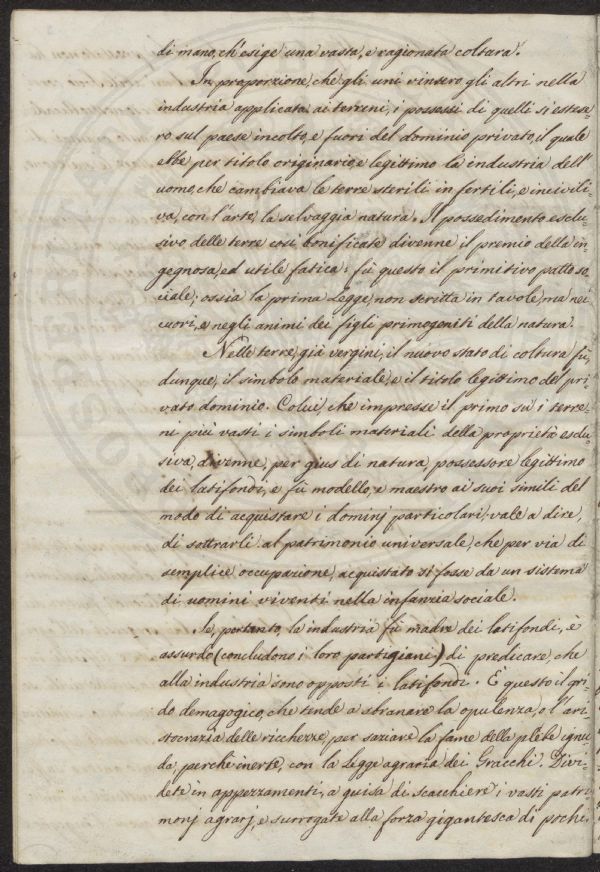 di mano, ch'esige una vasta, e ragionata coltura.
In proporzione, che gli uni vinsero gli altri nella
industria applicata ai terreni, i possessi di quelli si estese-
ro sul paese incolto, e fuori del dominio privato, il quale
ebbe per titolo originario, e legittimo la industria dell'
uomo, che cambiava le terre sterili in fertili, e incivili-
va, con l'arte, la selvaggia natura. Il possedimento esclu-
sivo delle terre così bonificate divenne il premio della in-
gegnosa, ed utile fatica: fù questo il primitivo patto so-
ciale; ossia la prima Legge, non scritta in tavole, ma nei
cuori, e negli animi dei figli primogeniti della natura.
Nelle terre, già vergini, il nuovo stato di coltura fù,
dunque, il simbolo materiale, e il titolo legittimo del pri-
vato dominio. Colui, che impresse il primo su i terre-
ni più vasti i simboli materiali della proprietà esclu-
siva, divenne, per gius di natura, possessore legittimo
dei latifondi, e fù modello, e maestro ai suoi simili del
modo di acquistare i dominj particolari, vale a dire,
di sottrarli al patrimonio universale, che per via di
semplice occupazione, acquistato si fosse da un sistema
di uomini viventi nella infanzia sociale.
Se, pertanto, la industria fù madre dei latifondi, è
assurdo (concludono i loro partigiani) di predicare, che
alla industria sono opposti i latifondi. È questo il gri-
do demagogico, che tende a sbranare la opulenza, o l'ari-
stocrazia delle ricchezze, per saziare la fame della plebe ignu-
da perchè inerte, con la Legge agraria dei Gracchi. Divi-
dete in appezzamenti, a guisa di scacchiere i vasti patri-
monj agrarj, e surrogate alla forza gigantesca di pochi